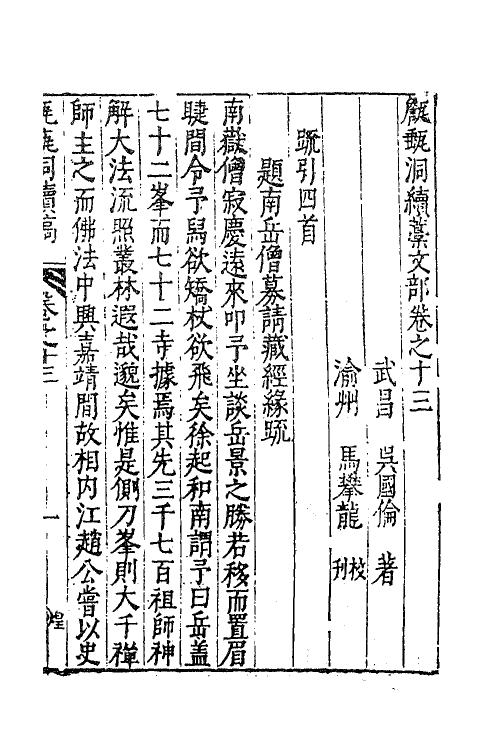 甔甀洞續藁文部卷之十三
武昌 吳國倫 著
渝州 馬攀龍 校刊
䟽引四首
題南岳僧募請藏經緣䟽
南嶽僧寂慶遠來叩予坐談岳景之勝若移而置眉
睫間令予舄欲矯杖欲飛矣徐起和南謂予曰岳蓋
七十二峯而七十二寺據焉其先三千七百祖師神
解大法流照叢林遐哉邈矣惟是側刀峯則大千禪
師主之而佛法中興嘉靖間故相内江趙公嘗以史
甔甀洞續稿
卷之十三
一